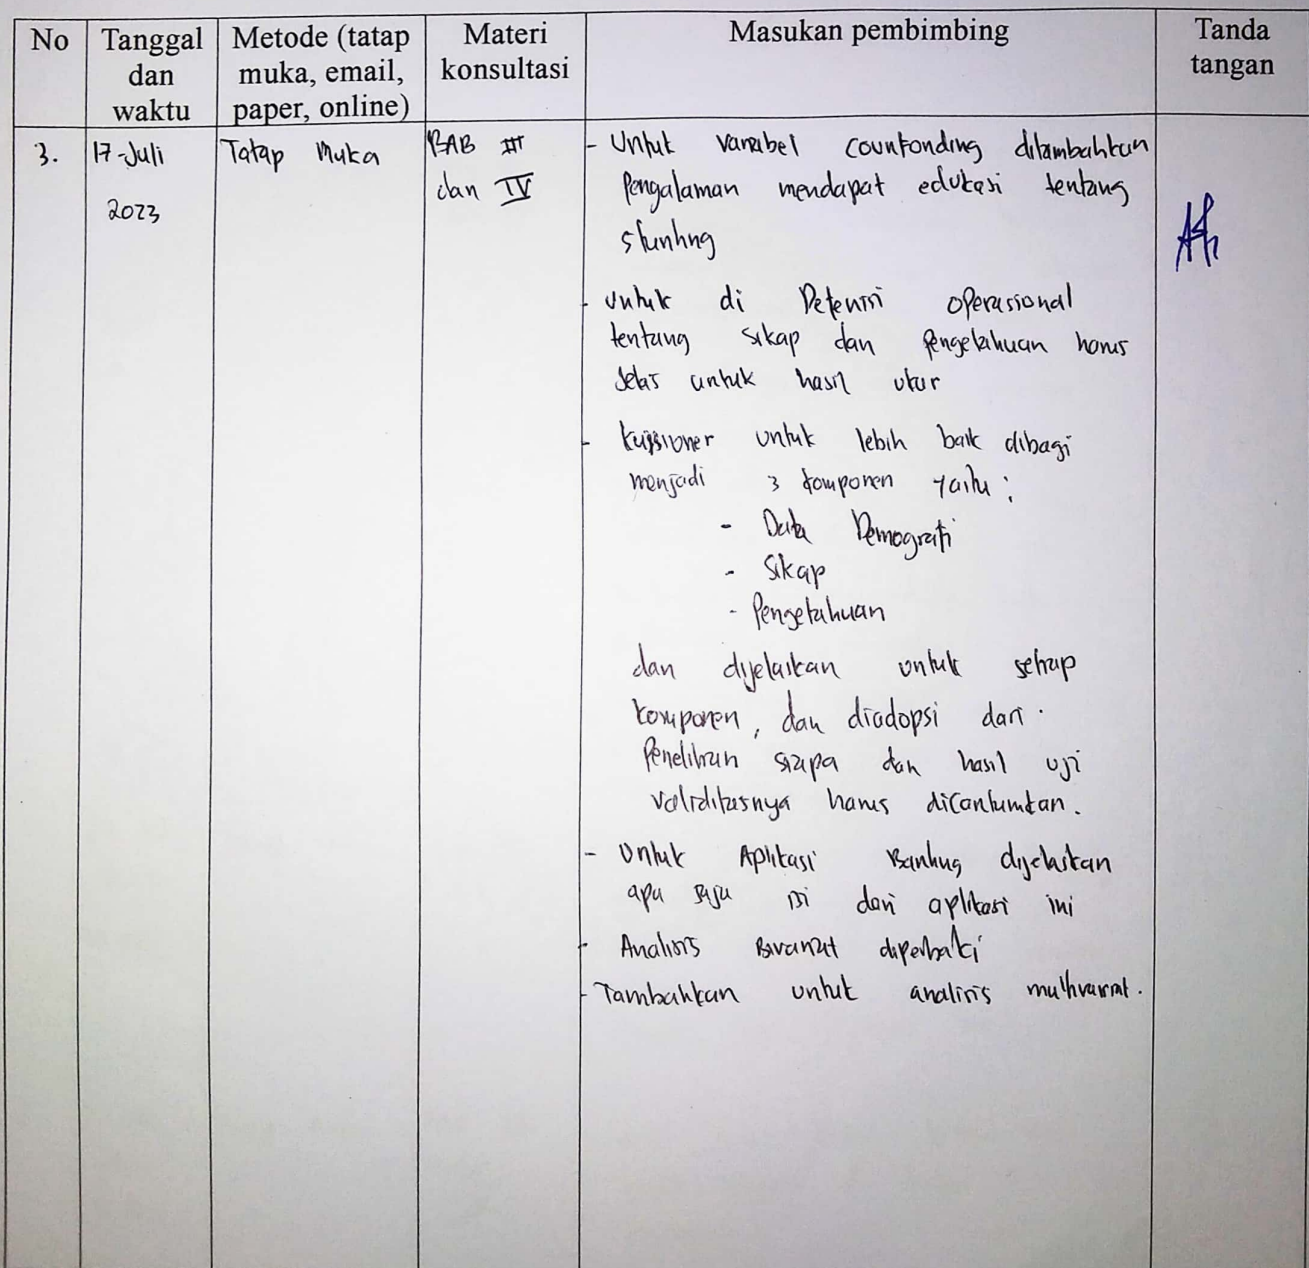 No
Tanggal
dan
waktu
Metode (tatap
muka, email,
paper, online)
Materi
konsultasi
Masukan pembimbing
Tanda
tangan
3.
17-Juli
2023
Tatap Muka
BAB III
dan IV
- Untuk variabel counfonding ditambahkan
Pengalaman mendapat edukasi tentang
stunting
- Untuk di Defenisi operasional
tentang sikap dan Pengetahuan harus
Jelas untuk hasil ukur
- kuisioner untuk lebih baik dibagi
menjadi 3 komponen yaitu :
- Data Demografi
- Sikap
- Pengetahuan
dan dijelaskan untuk setiap
komponen, dan diadopsi dari
Penelitian siapa dan hasil uji
validitasnya harus dicantumkan.
- Untuk Aplikasi dijelaskan
apa saja isi dari aplikasi ini
- Analisis Bivariat diperbaiki
- Tambahkan untuk analisis multivariat.